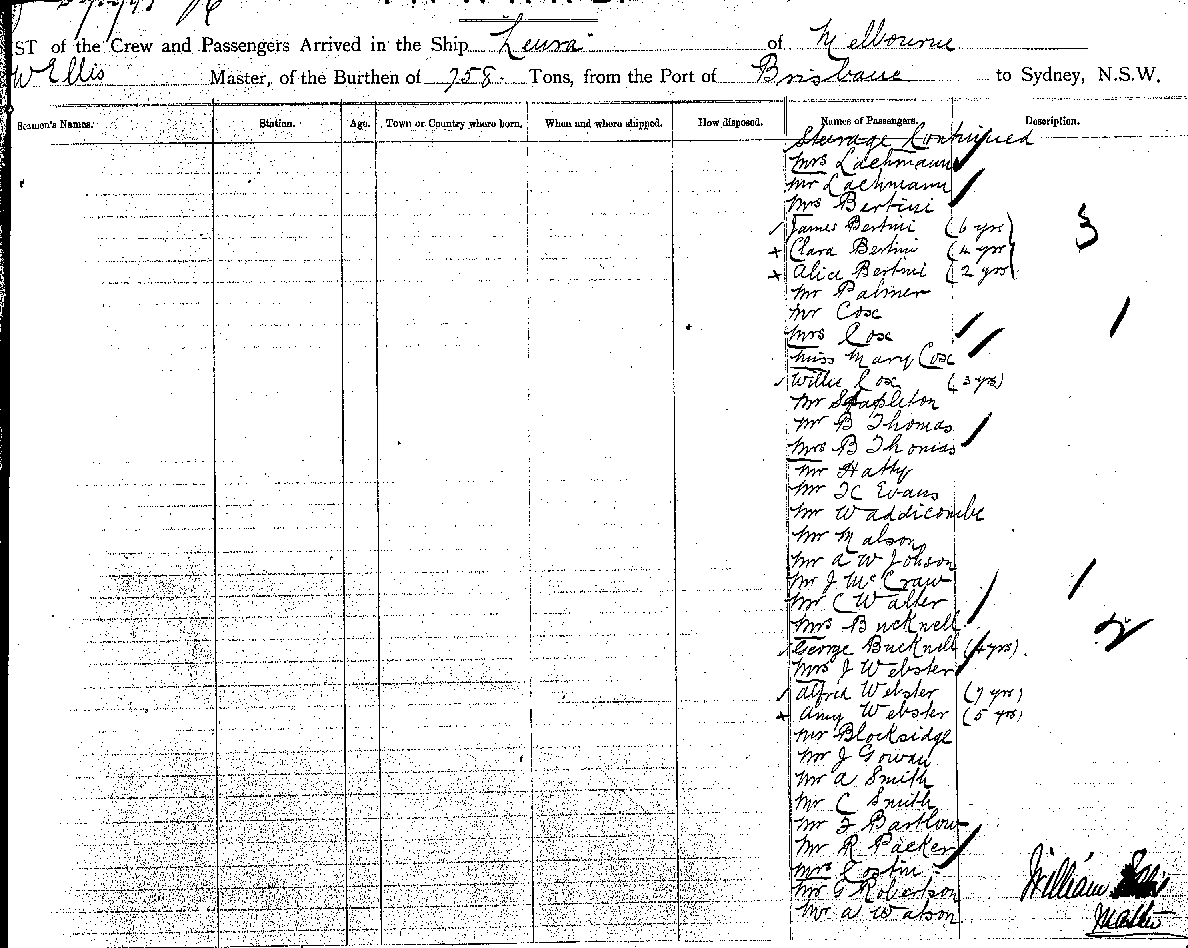 ST of the Crew and Passengers Arrived in the Ship Leura of Melbourne
W Ellis Master, of the Burthen of 758 Tons, from the Port of Brisbane to Sydney, N.S.W.
Seamen's Names. Station. Age. Town or Country where born. When and where shipped. How disposed. Names of Passengers. Description.
Steerage Continued
Mrs Lachmann
Mr Lachmann
Mrs Bertini
James Bertini (6 yrs)
Clara Bertini (4 yrs) 3
Alice Bertini (2 yrs)
Mr Palmer
Mr Cox
Mrs Cox
Miss Mary Cox
Willie Cox (3 yrs)
Mr Stapleton
Mr B Thomas
Mrs B Thomas
Mr Hatty
Mr Evans
Mr Waddicombe
Mr Malson
Mr A W Johson
Mr J McCraw
Mr C Walter
Mrs Bucknell
George Bucknell (4 yrs) 2
Mrs J Webster
Alfred Webster (7 yrs)
Amy Webster (5 yrs)
Mr Blocksidge
Mr J Gowan
Mr A Smith
Mr C Smith
Mr F Bartlow
Mr R Packer
Mrs Costin
Mr Robertson
Mr A Watson
William Ellis
Master